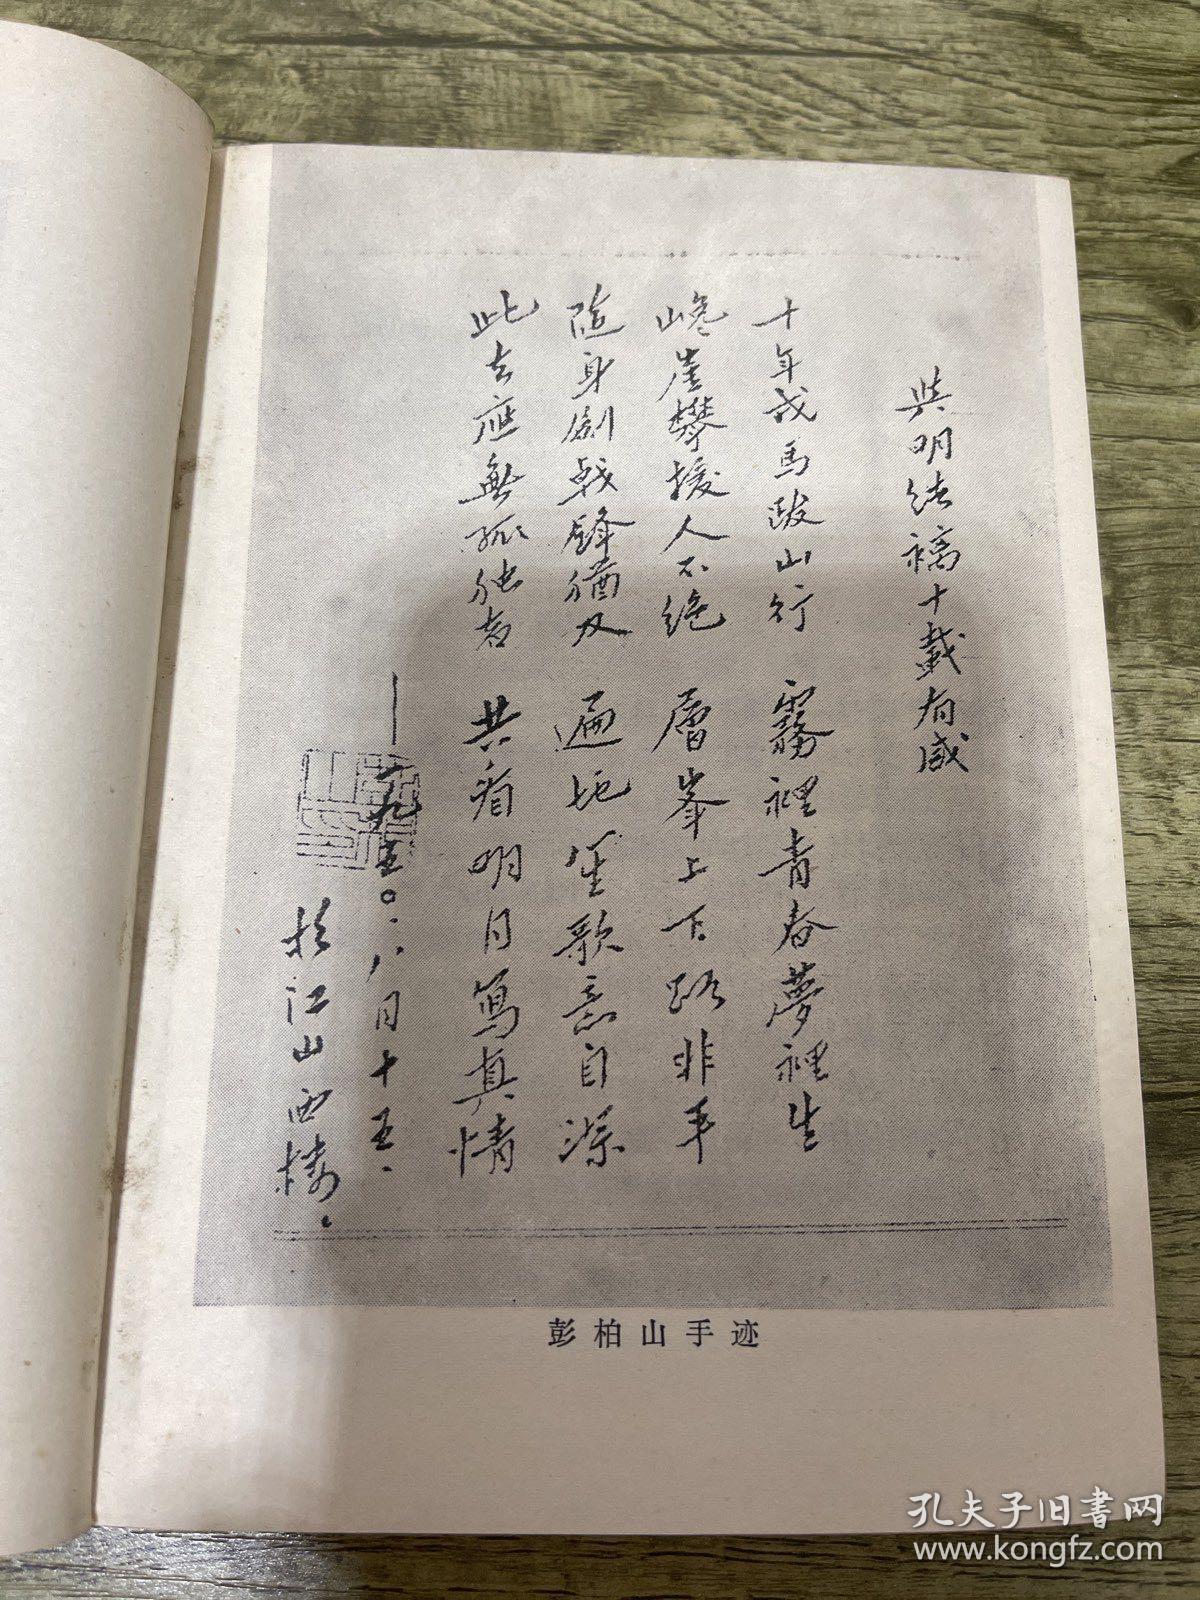 與明结褵十載有感
十年戎馬跋山行 霧裡青春夢裡生
巉崖攀援人不絕 層峯上下路非平
随身劍戟鋒猶 遍地笙歌意自深
此去應無孤独者 共看明月寫真情
一九五〇.八月十五、
於江山西樓.
彭柏山手迹
孔夫子旧书网
www.kongfz.com